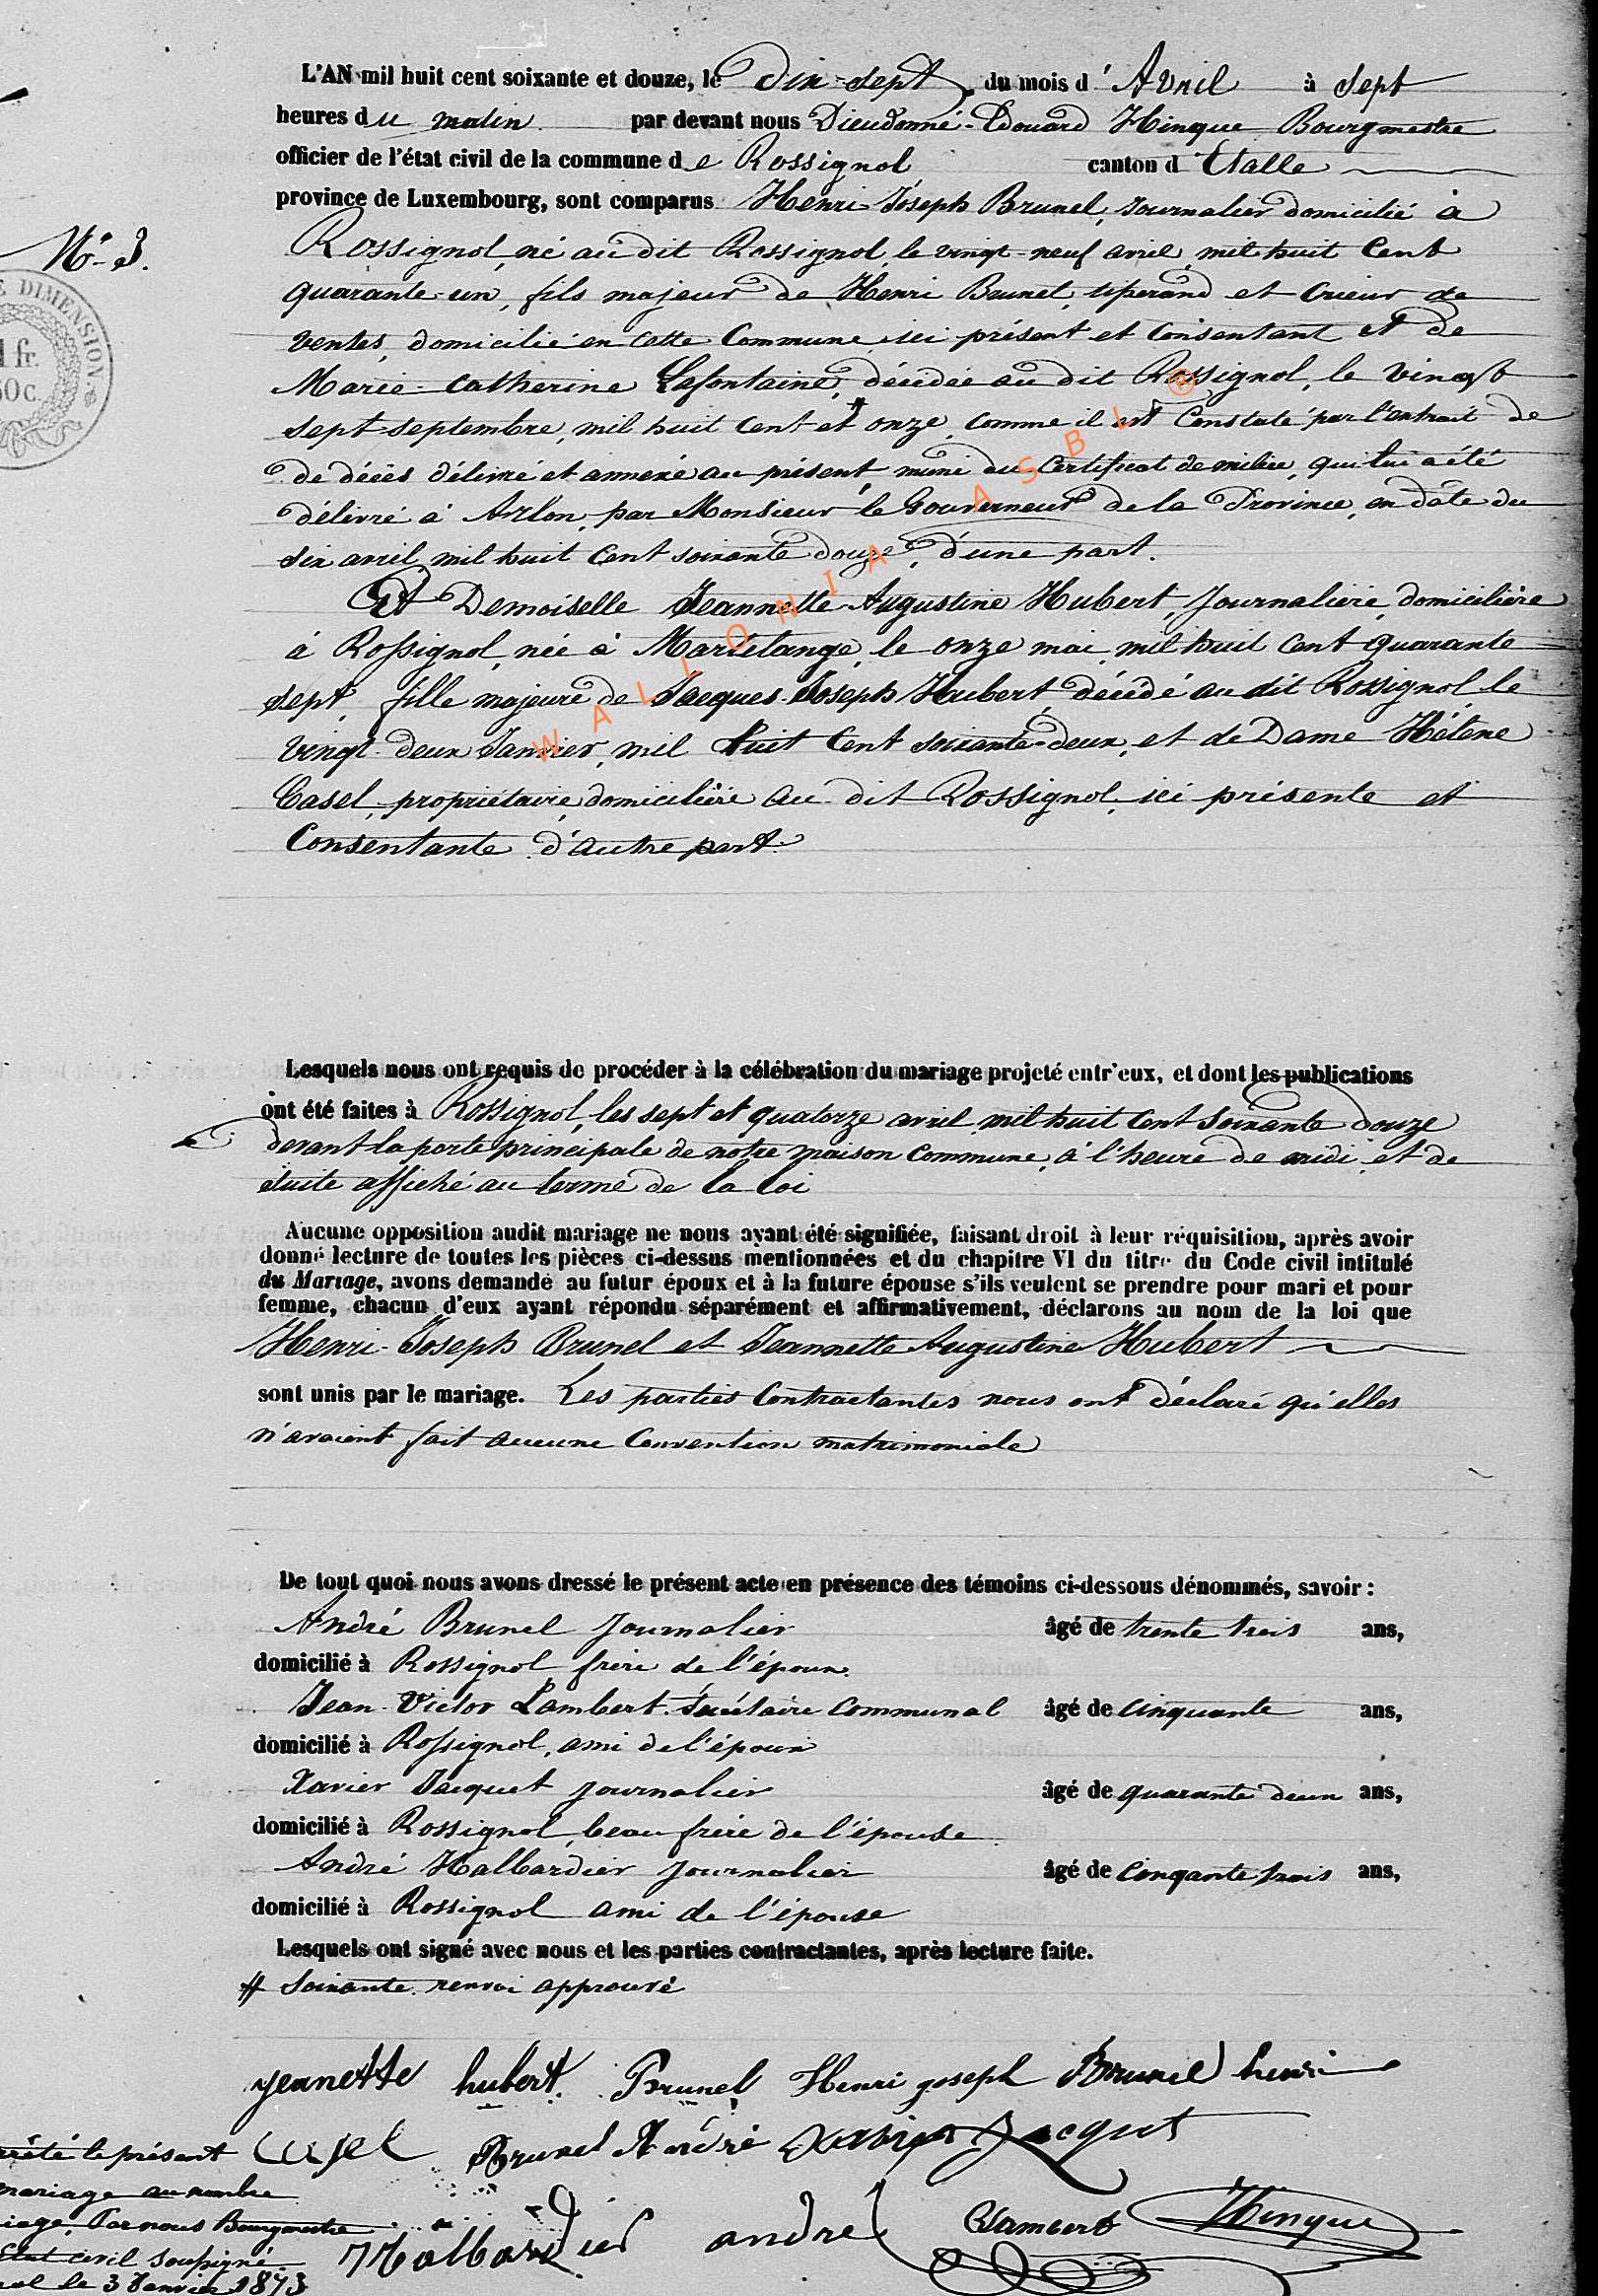 L'AN mil huit cent soixante et douze, le Dix-sept du mois d' Avril à sept
heures du matin par devant nous Dieudonné-Edouard Hinque Bourgmestre
officier de l'état civil de la commune de Rossignol canton d Etalle
province de Luxembourg, sont comparus Henri-Joseph Brunel, Journalier domicilié à
N° 3.
Rossignol, né au dit Rossignol, le vingt-neuf avril, mil huit Cent
E DIMENSION.
1 fr.
50c.
quarante-un, fils majeur de Henri Brunel, et Crieur de
ventes, domicilié en cette Commune ici présent et Consentant et de
Marie-Catherine Lafontaine, décédée au dit Rossignol, le vingt
sept septembre, mil huit Cent et # onze, comme il est Constaté par l'extrait de
de décès délivré et annexé au présent, muni du Certificat de milice, qui lui a été
délivré à Arlon, par Monsieur le Gouverneur de la Province, en date du
six avril mil huit Cent soixante douze, d'une part.
Et Demoiselle Jeannette Augustine Hubert, Journalière, domicilière
à Rossignol, née à Martelange, le onze mai, mil huit Cent quarante
sept, fille majeure de Jacques-Joseph Hubert, décédé au dit Rossignol le
vingt-deux Janvier, mil huit Cent soixante-deux, et de Dame Hélène
Casel, propriétaire, domicilière au dit Rossignol, ici présente et
Consentante d'autre part.
WALLONIA ASBL ®
Lesquels nous ont requis de procéder à la célébration du mariage projeté entr'eux, et dont les publications
ont été faites à Rossignol, les sept et quatorze avril mil huit Cent Soixante douze
devant la porte principale de notre maison Commune, à l'heure de midi, et de
suite affiché au terme de la loi
Aucune opposition audit mariage ne nous ayant été signifiée, faisant droit à leur réquisition, après avoir
donné lecture de toutes les pièces ci-dessus mentionnées et du chapitre VI du titre du Code civil intitulé
du Mariage, avons demandé au futur époux et à la future épouse s'ils veulent se prendre pour mari et pour
femme, chacun d'eux ayant répondu séparément et affirmativement, déclarons au nom de la loi que
Henri-Joseph Brunel et Jeannette Augustine Hubert
sont unis par le mariage. Les parties Contractantes nous ont déclaré qu'elles
n'avaient fait aucune Convention matrimoniale
De tout quoi nous avons dressé le présent acte en présence des témoins ci-dessous dénommés, savoir :
André Brunel Journalier âgé de trente trois ans,
domicilié à Rossignol frère de l'époux.
Jean-Victor Lambert Secrétaire Communal âgé de Cinquante ans,
domicilié à Rossignol, ami de l'époux
Xavier Jacquet Journalier âgé de quarante deux ans,
domicilié à Rossignol, beau frère de l'épouse
André Halbardier Journalier âgé de Cinqante trois ans,
domicilié à Rossignol ami de l'épouse
Lesquels ont signé avec nous et les parties contractantes, après lecture faite.
# Soixante. renvoi approuvé
jeanette hubert. Brunel Henri joseph Brunel henri
Casel Brunel André Xavier Jacquet
Halbardier andre Lambert Hinque
le présent
mariage au nombre
Par nous Bourgmestre
Etat civil soussigné
le 3 Janvier 1873